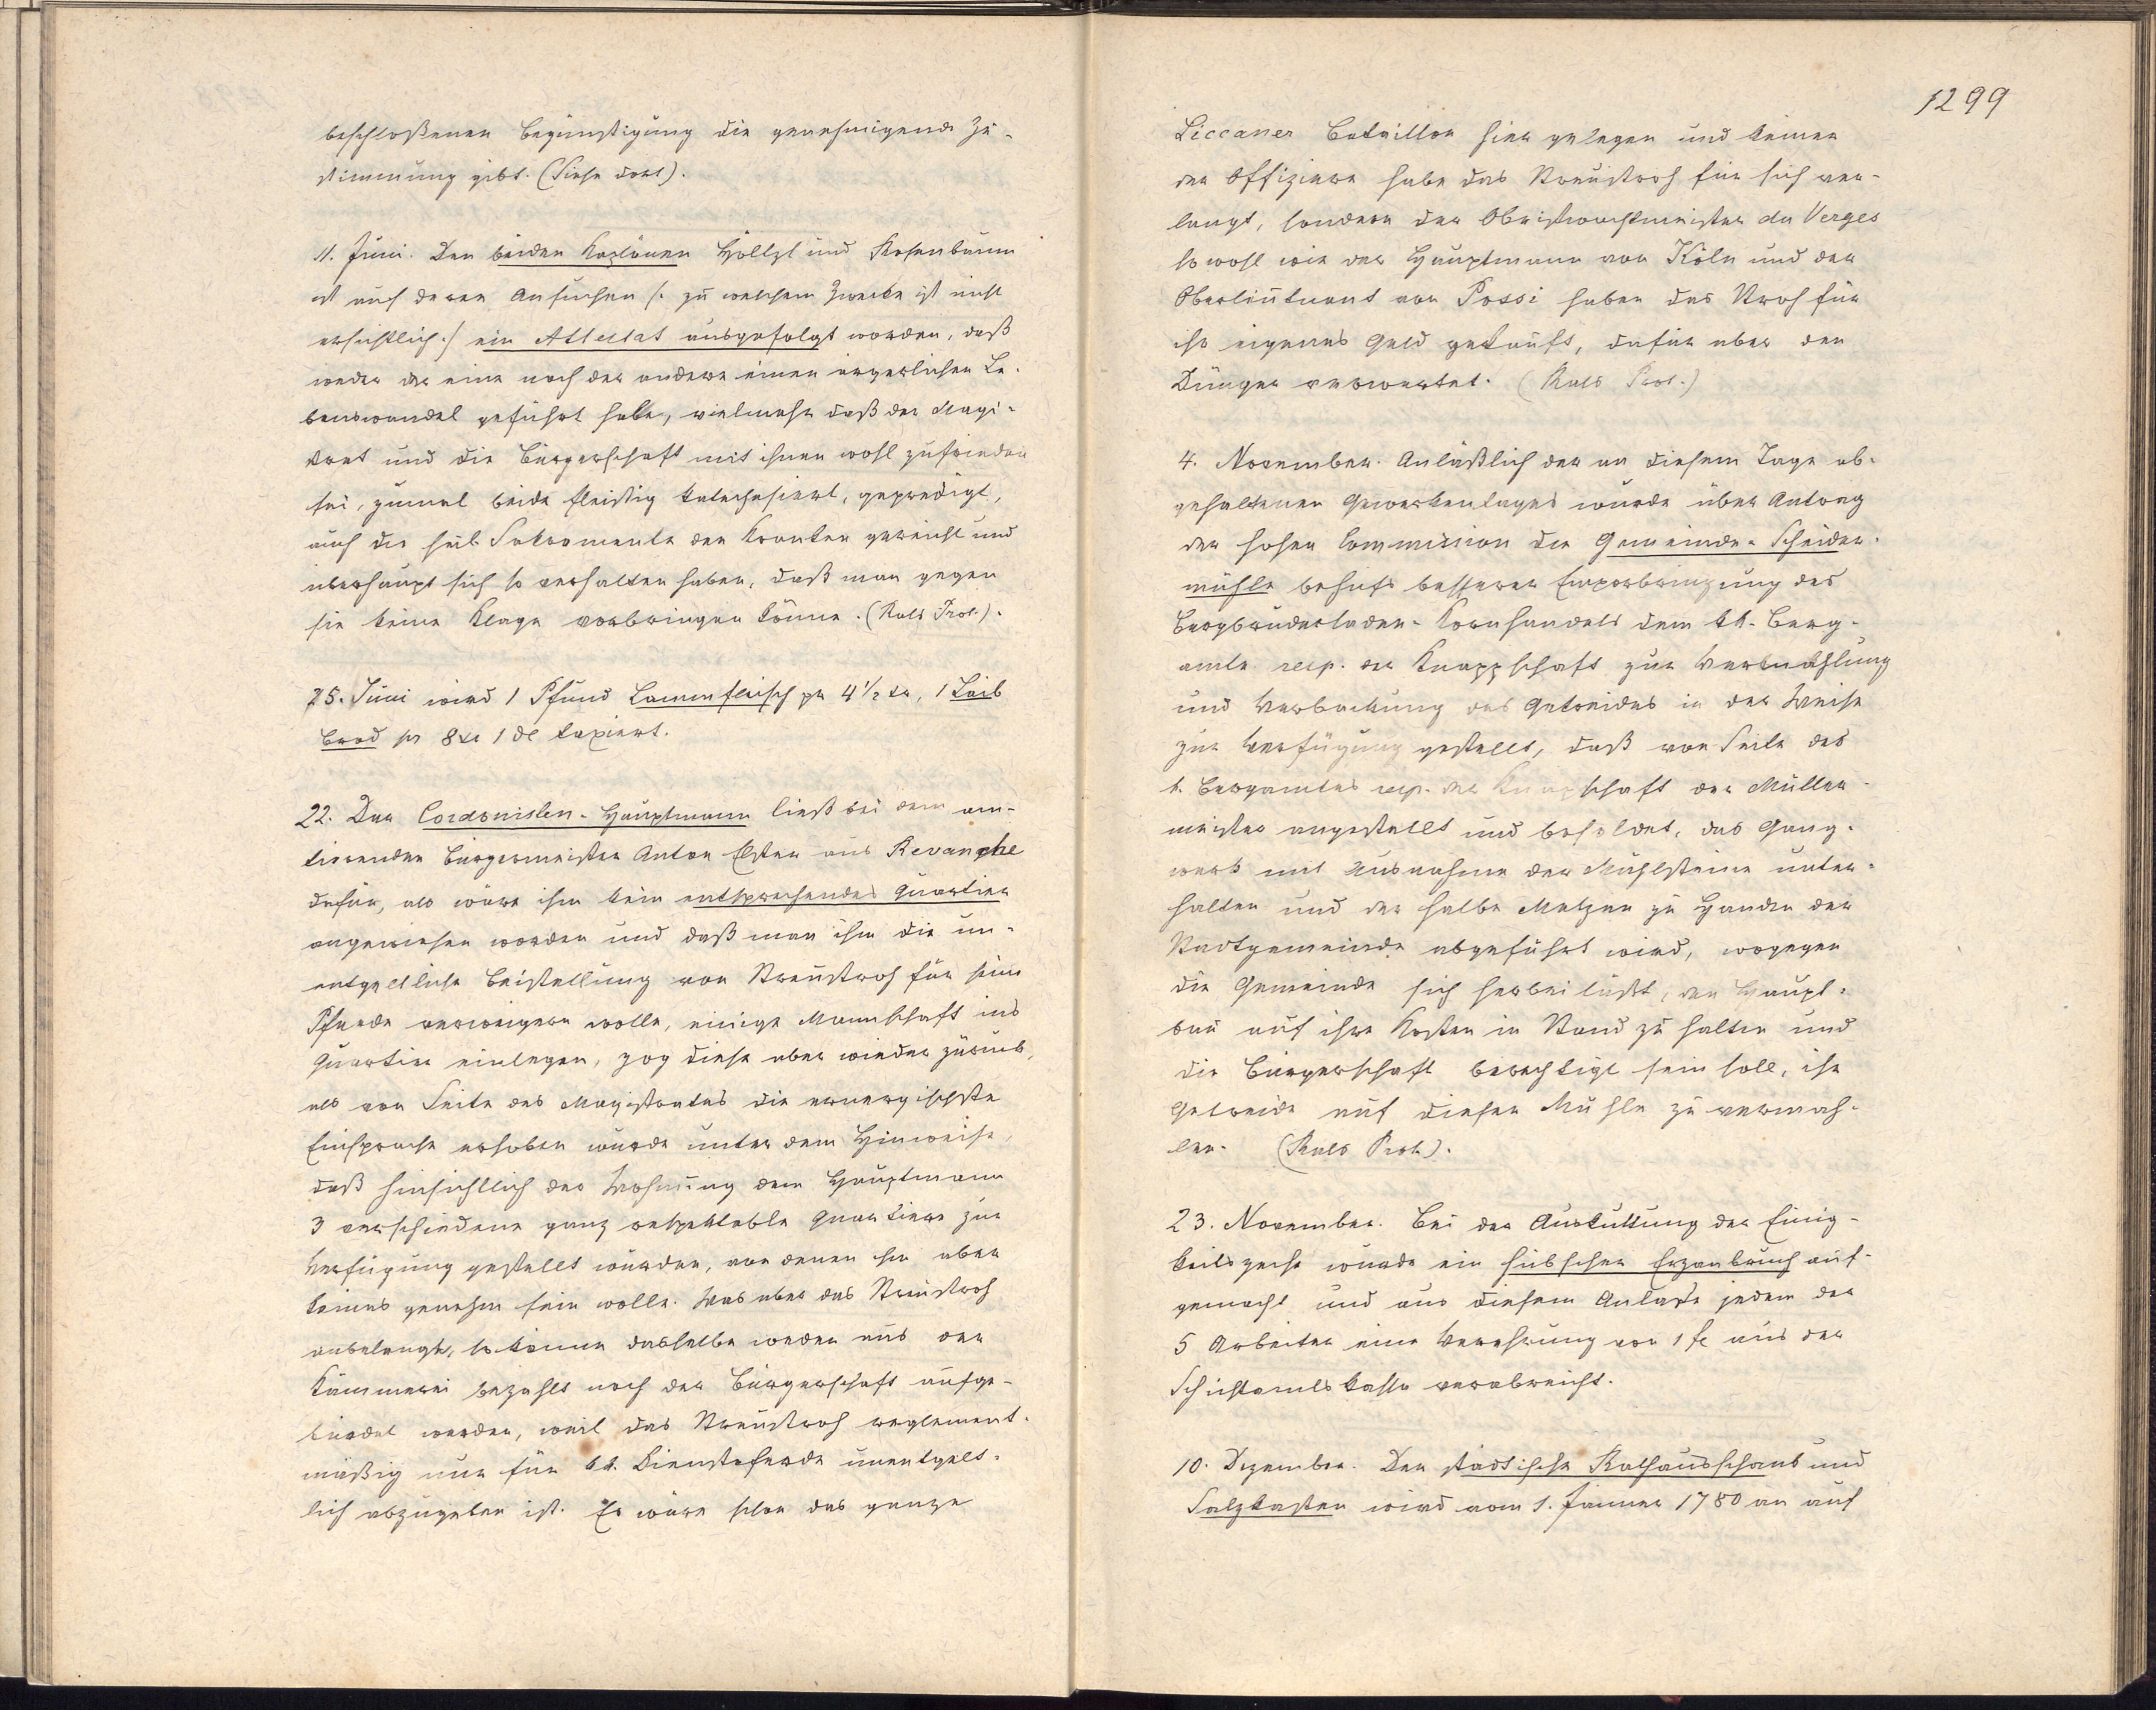 beschloßenen Begünstigung die genehmigende Zu-
stimmung gibt. (Siehe dort).
11. Juni. Den beiden Kaplänen Höltzl und Rosenbaum
ist auf deren Ansuchen /: zu welchem Zwecke ist nicht
ersichtlich :/ ein Attestat ausgefolgt worden, daß
weder der eine noch der andere einen ärgerlichen Le-
benswandel geführt habe, vielmehr daß der Magi-
strat und die Bürgerschaft mit ihnen wohl zufrieden
sei, zumal beide fleißig katechesiert, gepredigt,
auch die heil. Sakramente den Kranken gereicht und
überhaupt sich so verhalten haben, daß man gegen
sie keine Klage vorbringen könne. (Rats Prot.).
25. Juni wird 1 Pfund Lammfleisch pr 4 1/2 kr, 1 Laib
Brod pr 8 kr 1 dl taxiert.
22. Der Cordonisten-Hauptmann ließ bei dem am-
tierenden Bürgermeister Anton Elster aus Revanche
dafür, als wäre ihm kein entsprechendes Quartier
angewiesen worden und daß man ihm die un-
entgeltliche Beistellung von Streustroh für seine
Pferde verweigern wolle, einige Mannschaft ins
Quartier einlegen, zog diese aber wieder zurück,
als von Seite des Magistrates die energischste
Einsprache erhoben wurde unter dem Hinweise,
daß hinsichtlich der Wohnung dem Hauptmann
3 verschiedene ganz respektable Quartiere zur
Verfügung gestellt wurden, von denen ihm aber
keines genehm sein wolle. Was aber das Streustroh
anbelangt, so könne dasselbe weder aus der
Kämmerei bezahlt noch der Bürgerschaft aufge-
bürdet werden, weil das Streustroh reglement-
mäßig nur für kk. Dienstpferde unentgelt-
lich abzugeben ist. Es wäre schon das ganze
1299
Liccaner Bataillon hier gelegen und keiner
der Offiziere habe das Streustroh für sich ver-
langt, sondern der Obristwachtmeister du Verges
sowohl wie der Hauptmann von Köln und der
Oberleutnant von Possi haben das Stroh für
ihr eigenes Geld gekauft, dafür aber den
Dünger verwertet. (Rats Prot.)
4. November. Anläßlich der an diesem Tage ab-
gehaltenen Gewerkentages wurde über Antrag
der hohen Commission die Gemeinde-Scheider-
mühle behufs besserer Emporbringung des
Bergbruderladen-Kornhandels dem kk. Berg-
amte resp. der Knappschaft zur Vermahlung
und Verbackung des Getreides in der Weise
zur Verfügung gestellt, daß von Seite des
k. Bergamtes resp. der Knappschaft der Müller-
meister angestellt und besoldet, das Gang-
werk mit Ausnahme der Mühlsteine unter-
halten und der halbe Metzen zu Handen der
Stadtgemeinde abgeführt wird, wogegen
die Gemeinde sich herbeiläßt, den Haupt-
bau auf ihre Kosten in Stand zu halten und
die Bürgerschaft berechtigt sein soll, ihr
Getreide auf dieser Mühle zu vermah-
len. (Rats Prot.).
23. November. Bei der Auskuttung der Einig-
keitszeche wurde ein hübscher Erzanbruch auf-
gemacht und aus diesem Anlaße jedem der
5 Arbeiter eine Verehrung von 1 fl aus der
Schichtamtskassa verabreicht.
10. Dezember. Der städtische Rathausschank und
Salzkasten wird vom 1. Jänner 1780 an auf